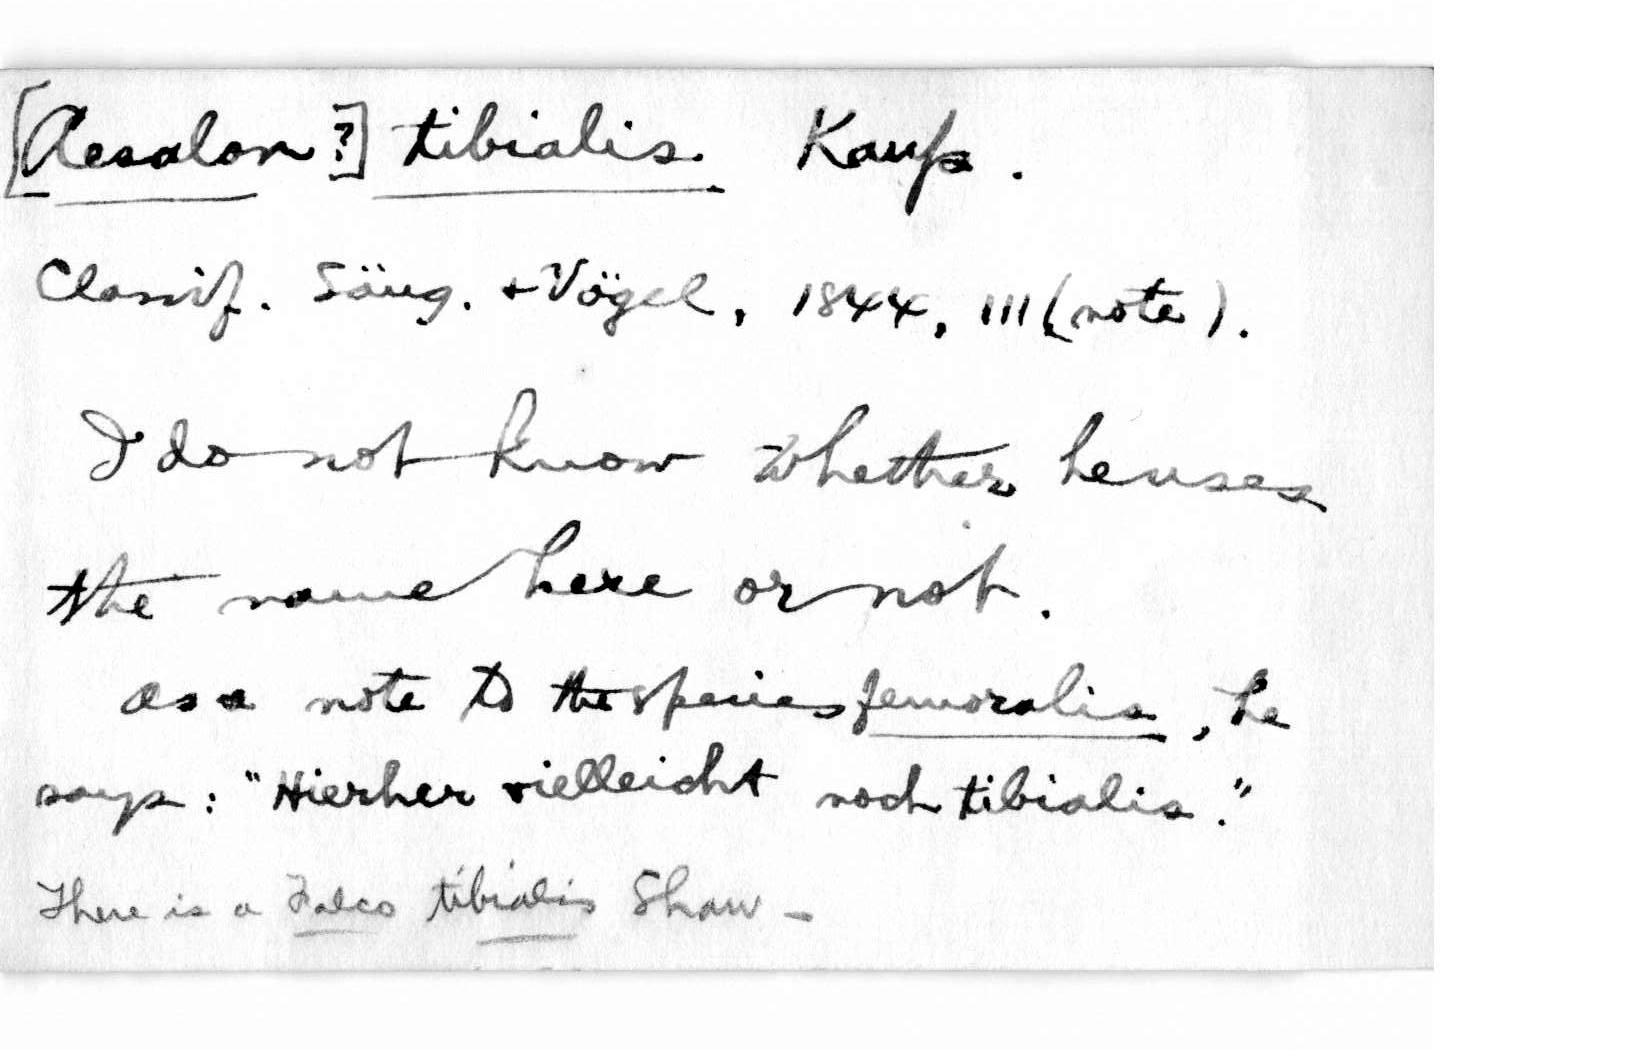 [Aesalon ?] tibialis. Kaup.
Classif. Säug. + Vögel, 1844, 111 (note).
I do not know whether he uses
the name here or not.
As a note to the species femoralis, he
says: "Hierher vielleicht noch tibialis."
There is a Falco tibialis Shaw -